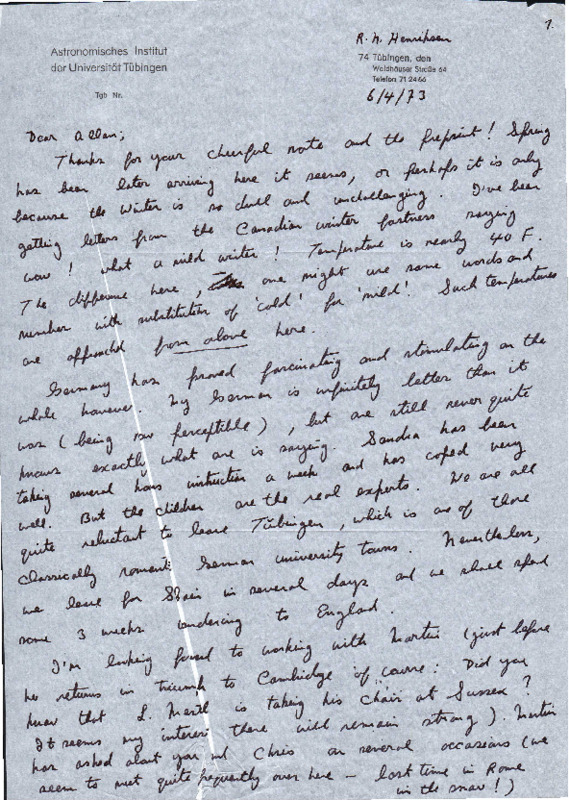 1.
Astronomisches Institut
der Universität Tübingen
Tgb Nr.
R. N. Henriksen
74 Tübingen, den
Waldhäuser Straße 64
Telefon 71 24 66
6/4/73
Dear Allan;
Thanks for your cheerful note and the preprint! Spring
has been later arriving here it seems, or perhaps it is only
because the Winter is so dull and unchallenging. I've been
getting letters from the Canadian winter fastness saying
wow! what a mild winter! Temperature is nearly 40 F.
The difference here, one might use same words and
number with substitution of 'cold' for 'mild'! Such temperatures
are approached from above here.
Germany has proved fascinating and stimulating on the
whole however. My German is infinitely better than it
was (being now perceptible), but one still never quite
knows exactly what one is saying. Sandra has been
taking several hours instruction a week and has coped very
well. But the children are the real experts. We are all
quite reluctant to leave Tübingen, which is one of those
classically romantic German university towns. Nevertheless,
we leave for Spain in several days and we shall spend
some 3 weeks wandering to England.
I'm looking forward to working with Martin (just before
he returns in triumph to Cambridge of course: Did you
know that L. Mestel is taking his Chair at Sussex?
It seems my interest there will remain strong). Martin
has asked about you and Chris on several occasions (we
seem to meet quite frequently over here – last time in Rome
in the snow!)